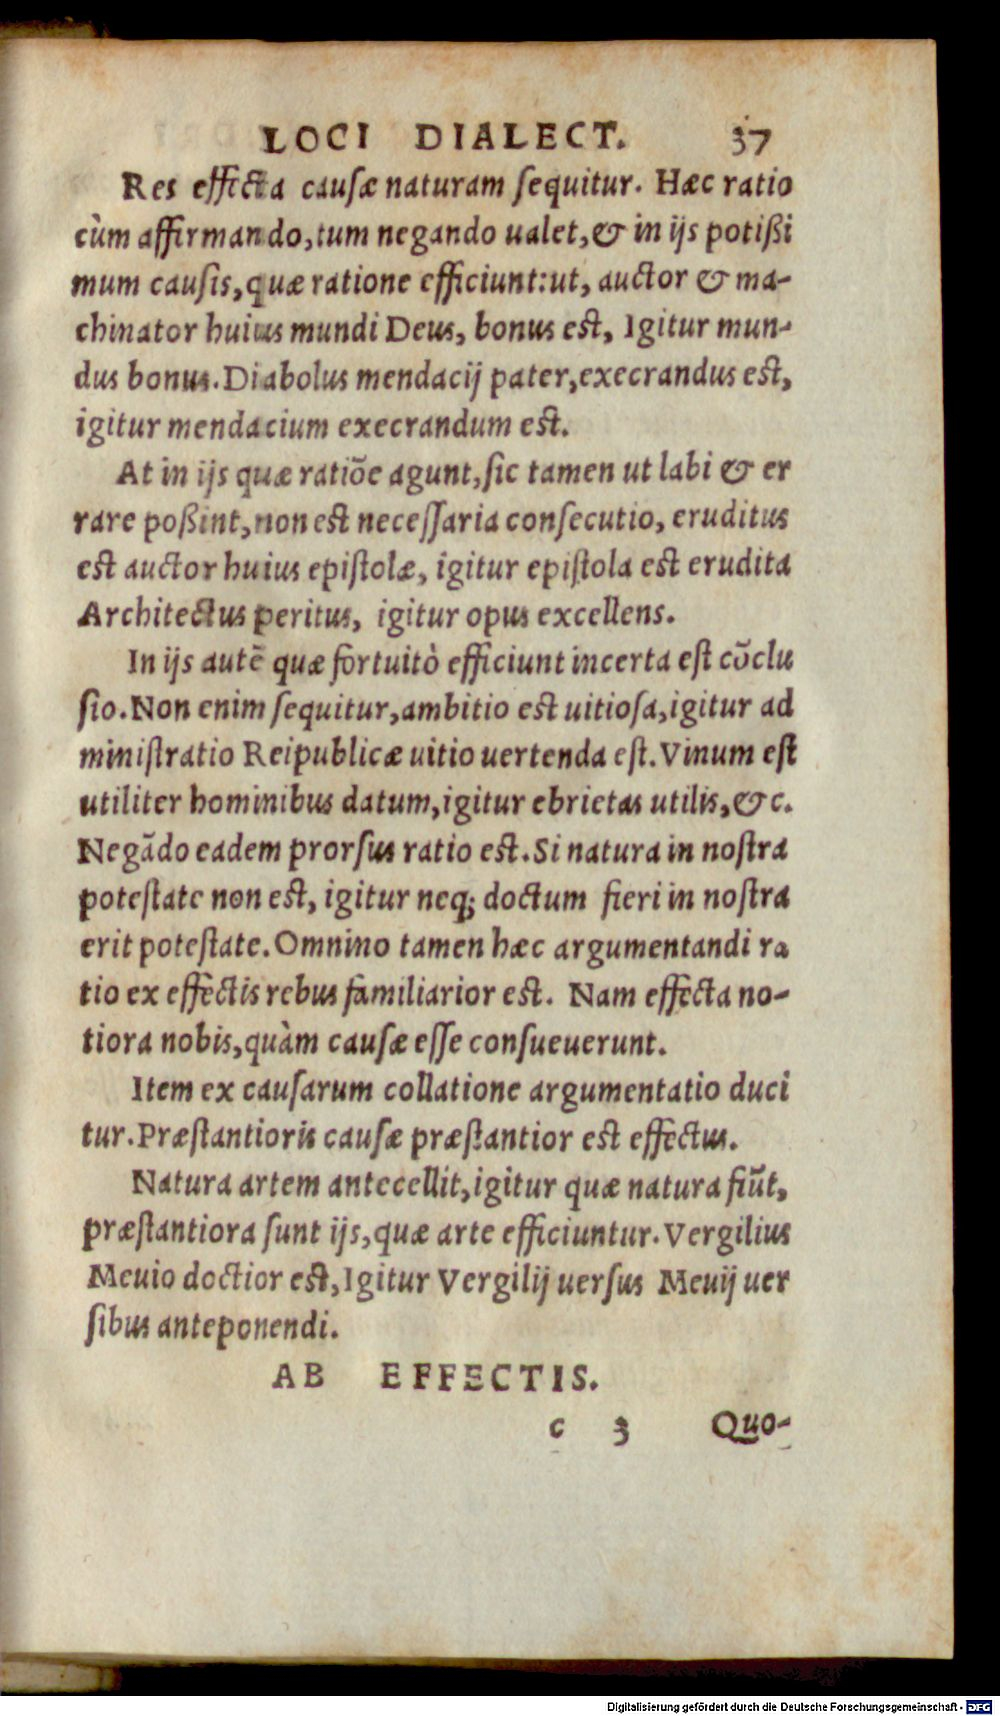 LOCI DIALECT. 37
Res effecta causæ naturam sequitur. Hæc ratio
cùm affirmando, tum negando ualet, & in ijs potißi
mum causis, quæ ratione efficiunt: ut, auctor & ma-
chinator huius mundi Deus, bonus est, Igitur mun-
dus bonus. Diabolus mendacij pater, execrandus est,
igitur mendacium execrandum est.
At in ijs quæ ratiōe agunt, sic tamen ut labi & er
rare poßint, non est necessaria consecutio, eruditus
est auctor huius epistolæ, igitur epistola est erudita
Architectus peritus, igitur opus excellens.
In ijs autē quæ fortuitò efficiunt incerta est cōclu
sio. Non enim sequitur, ambitio est uitiosa, igitur ad
ministratio Reipublicæ uitio uertenda est. Vinum est
utiliter hominibus datum, igitur ebrietas utilis, & c.
Negādo eadem prorsus ratio est. Si natura in nostra
potestate non est, igitur neq; doctum fieri in nostra
erit potestate. Omnino tamen hæc argumentandi ra
tio ex effectis rebus familiarior est. Nam effecta no-
tiora nobis, quàm causæ esse consueuerunt.
Item ex causarum collatione argumentatio duci
tur. Præstantioris causæ præstantior est effectus.
Natura artem antecellit, igitur quæ natura fiūt,
præstantiora sunt ijs, quæ arte efficiuntur. Vergilius
Meuio doctior est, Igitur Vergilij uersus Meuij uer
sibus anteponendi.
AB EFFECTIS.
c 3 Quo-
Digitalisierung gefördert durch die Deutsche Forschungsgemeinschaft - DFG